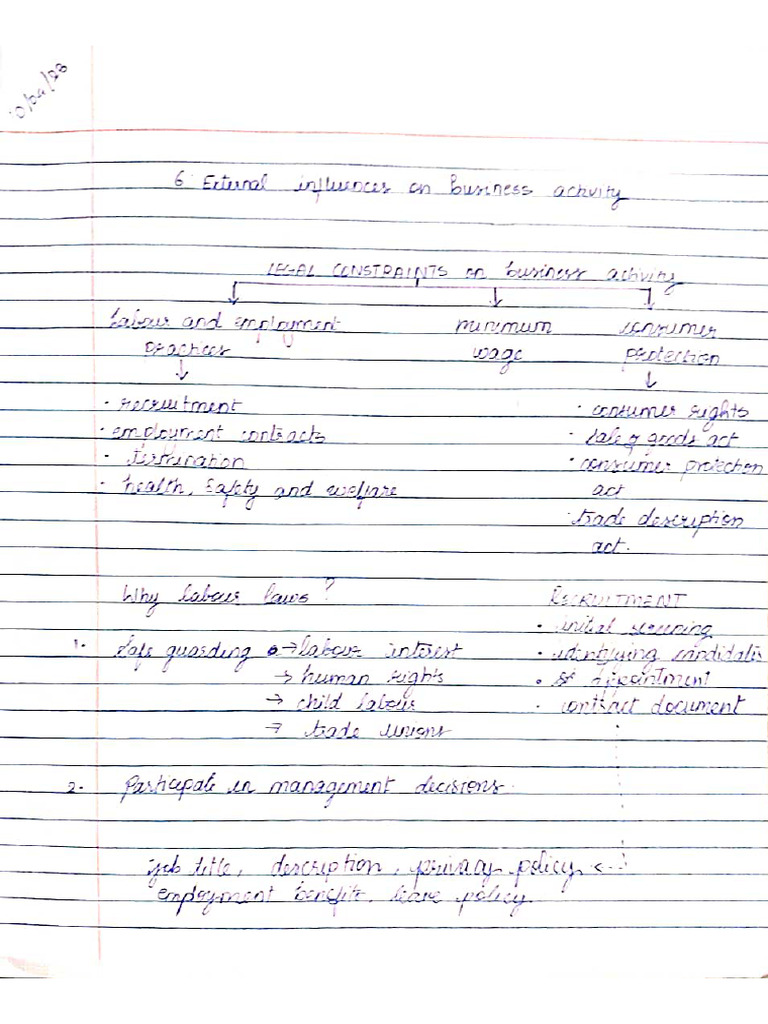 10/04/23
6 External influences on Business activity
LEGAL CONSTRAINTS on business activity
labour and employment minimum consumer
practices wage protection
· recruitment · consumer rights
· employment contracts · sale of goods act
· termination · consumer protection
· health, safety and welfare act
· trade description
act.
Why labour laws? RECRUITMENT
· initial screening
1. Safe guarding → labour interest · identifying candidates
→ human rights · appointment
→ child labour · contract document
→ trade unions
2. Participate in management decisions.
job title, description, privacy policy
employment benefits, leave policy.